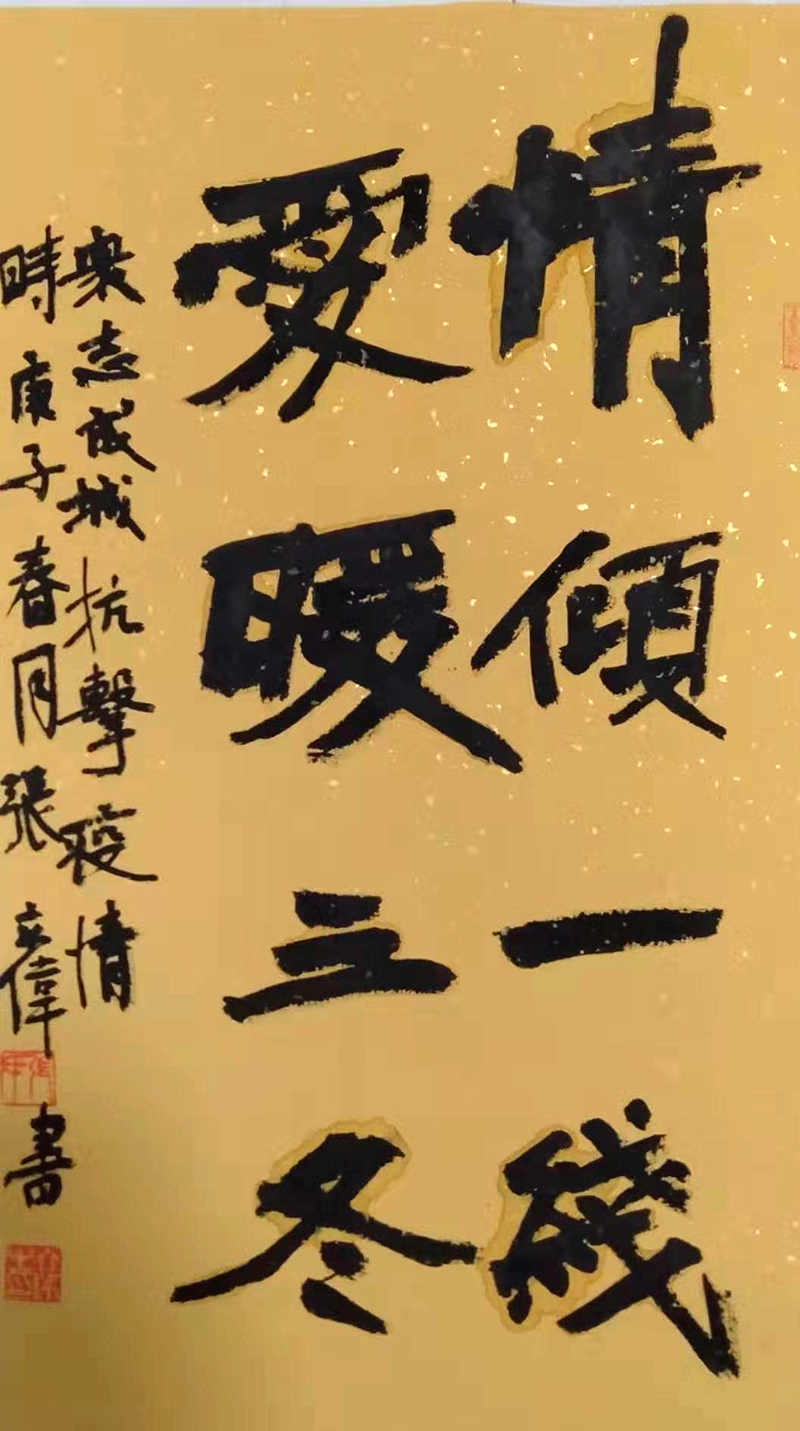 情傾一綫
愛暖三冬
衆志成城抗擊疫情
時庚子春月張立偉書